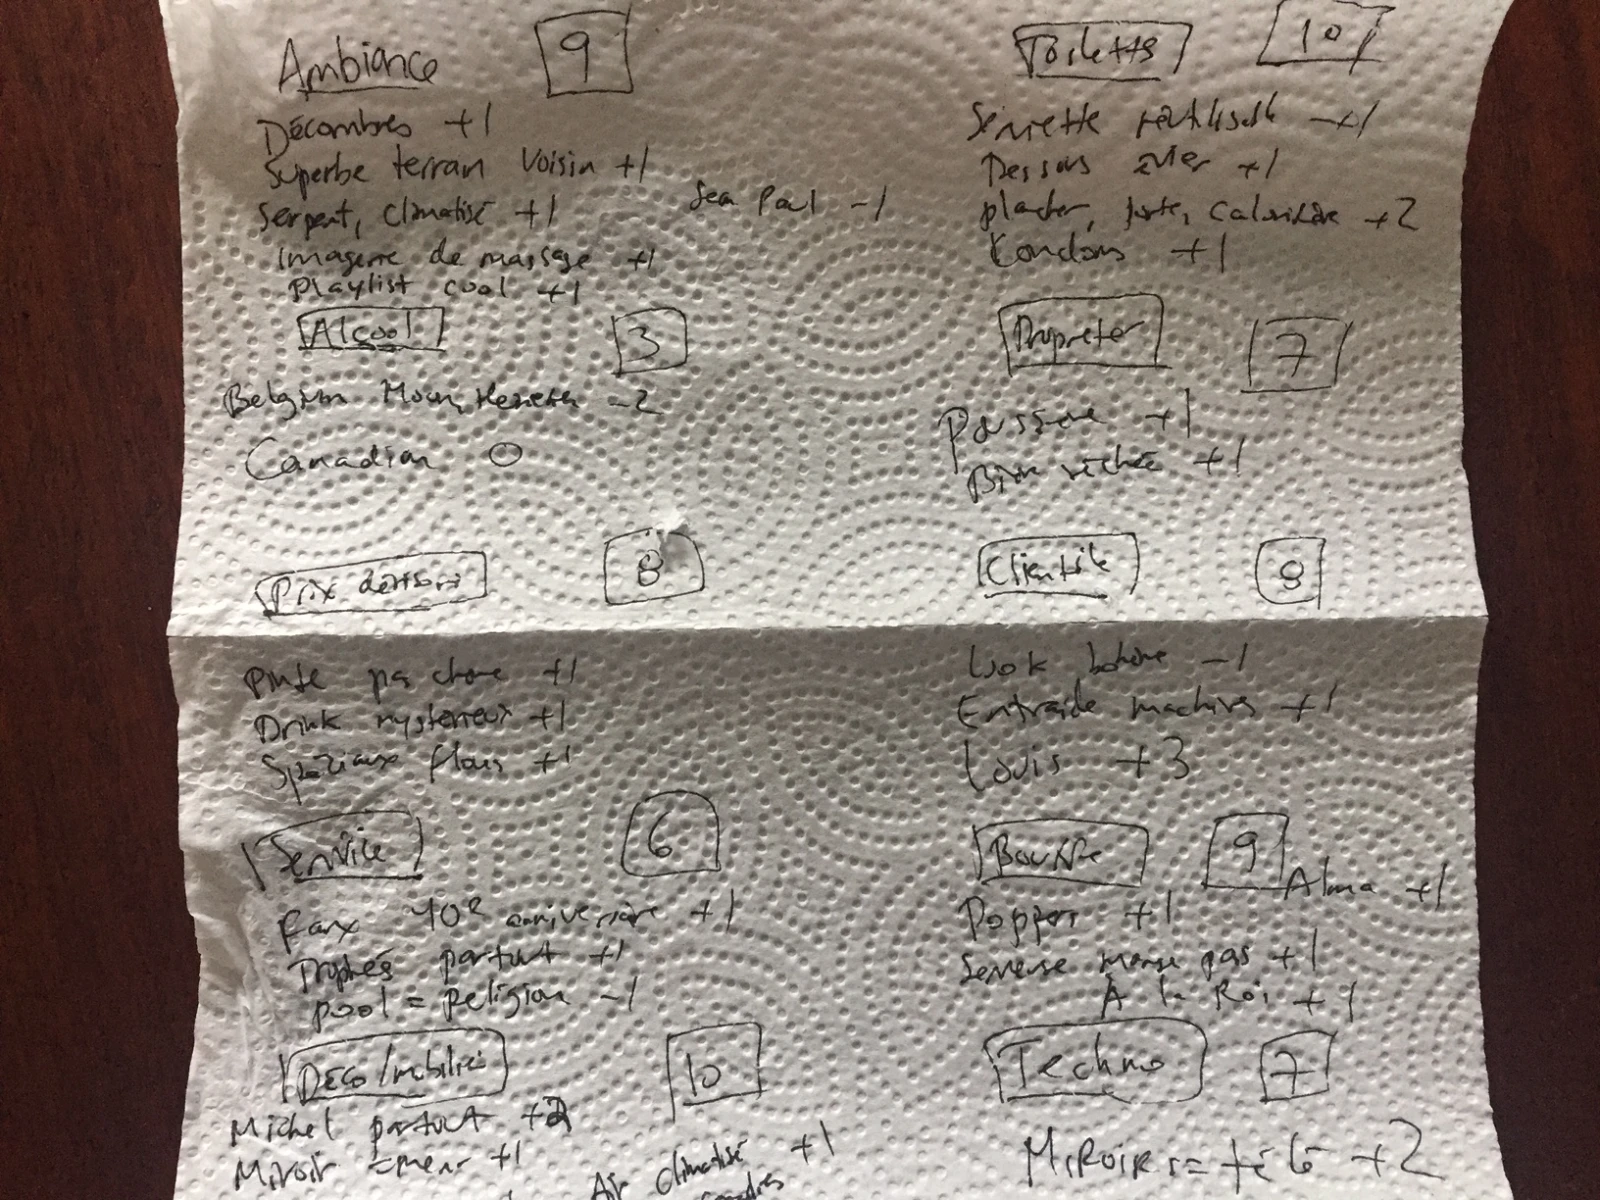 Ambiance 9
Décombres +1
Superbe terrain voisin +1
Serpent, climatisé +1
Jean Paul -1
Imagerie de massage +1
Playlist cool +1
Alcool 3
Belgian Moon, -2
Canadian 0
Prix 8
Pinte pas chère +1
Drink mystérieux +1
Spéciaux flous +1
Service 6
Faux 40e anniversaire +1
Trophés partout +1
pool = religion -1
Déco/mobilier 10
Michel partout +2
Miroir +1
Air climatisé +1
Toilettes 10
Serviette réutilisable +1
Dessous évier +1
plancher, porte, calorifère +2
Condoms +1
Propreter 7
Poussière +1
Bière séchée +1
Clientèle 8
Look bohème -1
Entraide machines +1
Louis +3
Bouffe 9
Alma +1
Poppers +1
Serveuse mange pas +1
À la Roi +1
Techno 7
Miroirs = télé +2